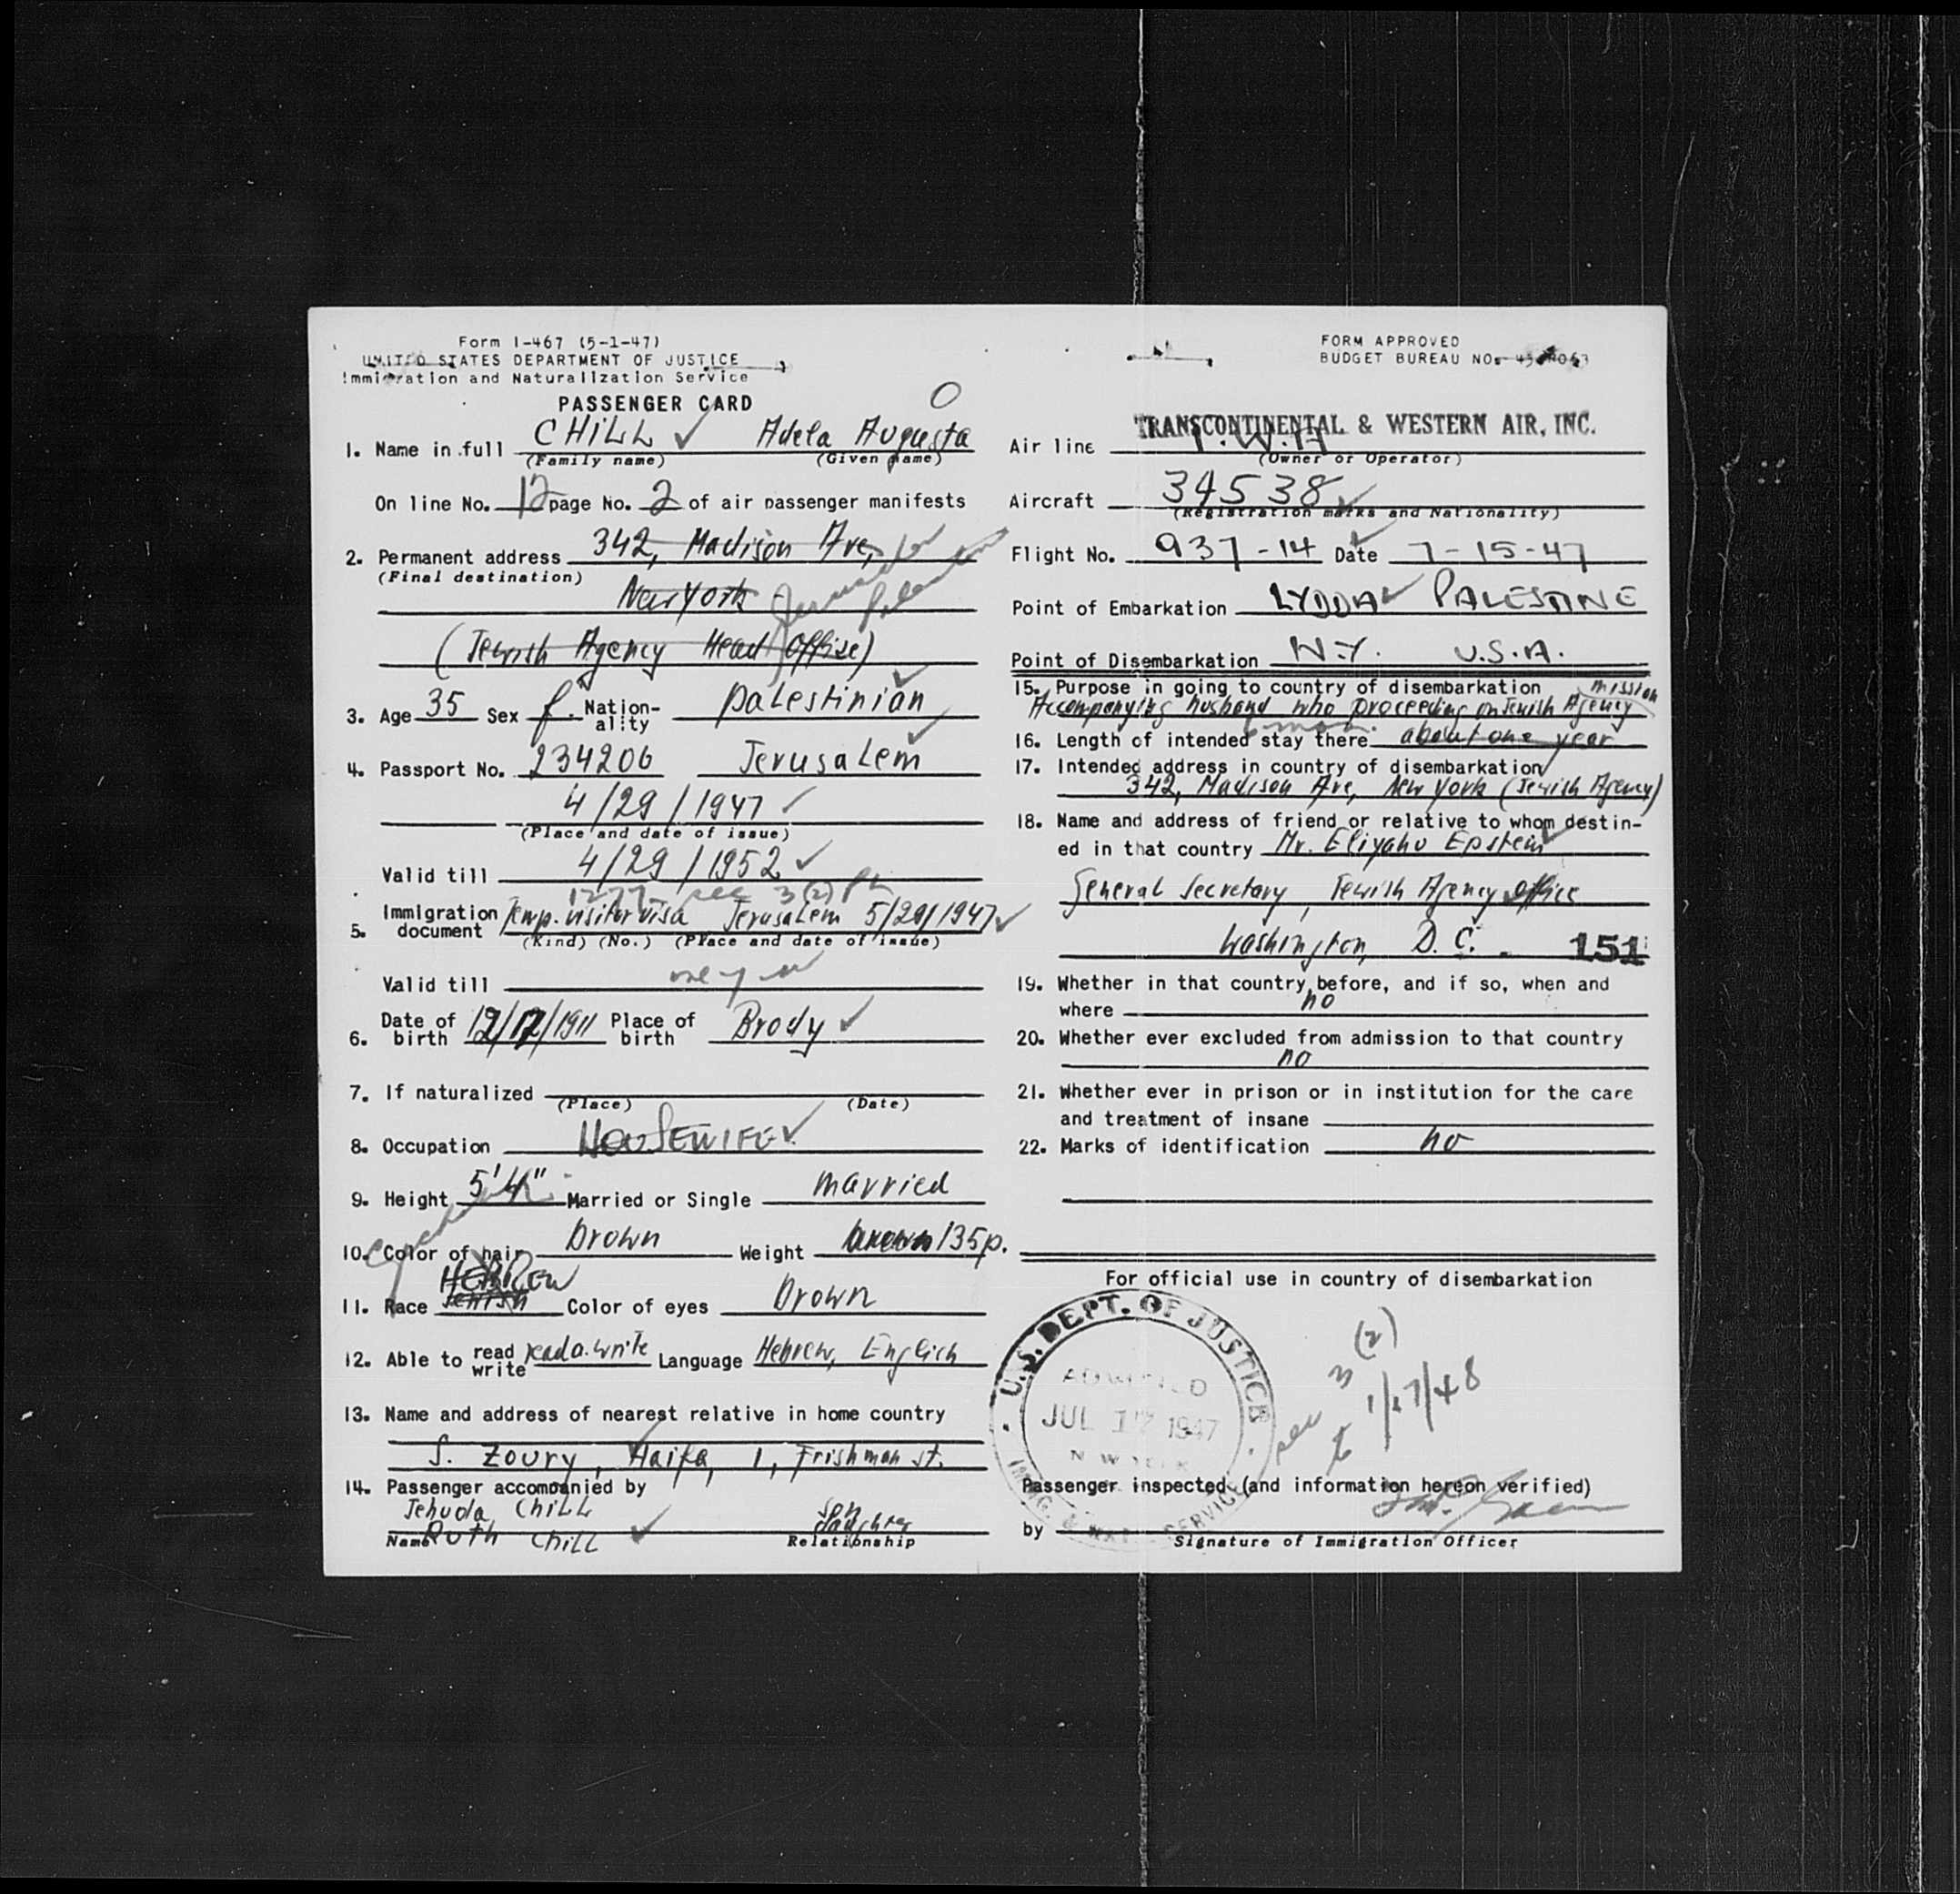 Form I-467 (5-1-47)
UNITED STATES DEPARTMENT OF JUSTICE
Immigration and Naturalization Service
PASSENGER CARD
O
1. Name in full CHILL Adela Augusta
(Family name) (Given name)
On line No. 12 page No. 2 of air passenger manifests
2. Permanent address 342, Madison Ave,
(Final destination)
New York
(Jewish Agency Head Office)
3. Age 35 Sex f. Nation-ality palestinian
4. Passport No. 234206 Jerusalem
4/29/1947
(Place and date of issue)
Valid till 4/29/1952
sec 3(2)
5. Immigration document Temp. visitor visa Jerusalem 5/29/1947
(Kind) (No.) (Place and date of issue)
Valid till one year
6. Date of birth 12/12/1911 Place of birth Brody
7. If naturalized
(Place) (Date)
8. Occupation HOUSEWIFE
9. Height 5'4" Married or Single married
10. Color of hair brown Weight brown 135p.
HEBREW
11. Race Jewish Color of eyes brown
12. Able to read write read a. write Language Hebrew, English
13. Name and address of nearest relative in home country
S. Zoury, Haifa, 1, Frishman st.
14. Passenger accompanied by
Jehuda Chill son
Ruth Chill daughter
Name Relationship
FORM APPROVED
BUDGET BUREAU NO.
TRANSCONTINENTAL & WESTERN AIR, INC.
Air line T.W.A
(Owner or Operator)
Aircraft 34538
(Registration marks and Nationality)
Flight No. 937-14 Date 7-15-47
Point of Embarkation LYDDA PALESTINE
Point of Disembarkation N.Y. U.S.A.
15. Purpose in going to country of disembarkation mission
Accompanying husband who proceeding on Jewish Agency
6 mos.
16. Length of intended stay there about one year
17. Intended address in country of disembarkation
342, Madison Ave, New York (Jewish Agency)
18. Name and address of friend or relative to whom destin-
ed in that country Mr. Eliyahu Epstein
General Secretary, Jewish Agency office
Washington, D.C. 151
19. Whether in that country before, and if so, when and
where no
20. Whether ever excluded from admission to that country
no
21. Whether ever in prison or in institution for the care
and treatment of insane
22. Marks of identification no
For official use in country of disembarkation
U.S. DEPT. OF JUSTICE
ADMITTED
JUL 17 1947
NEW YORK
IMMIG. & NAT. SERVICE
sec 3 (2)
to 1/17/48
Passenger inspected (and information hereon verified)
by
Signature of Immigration Officer